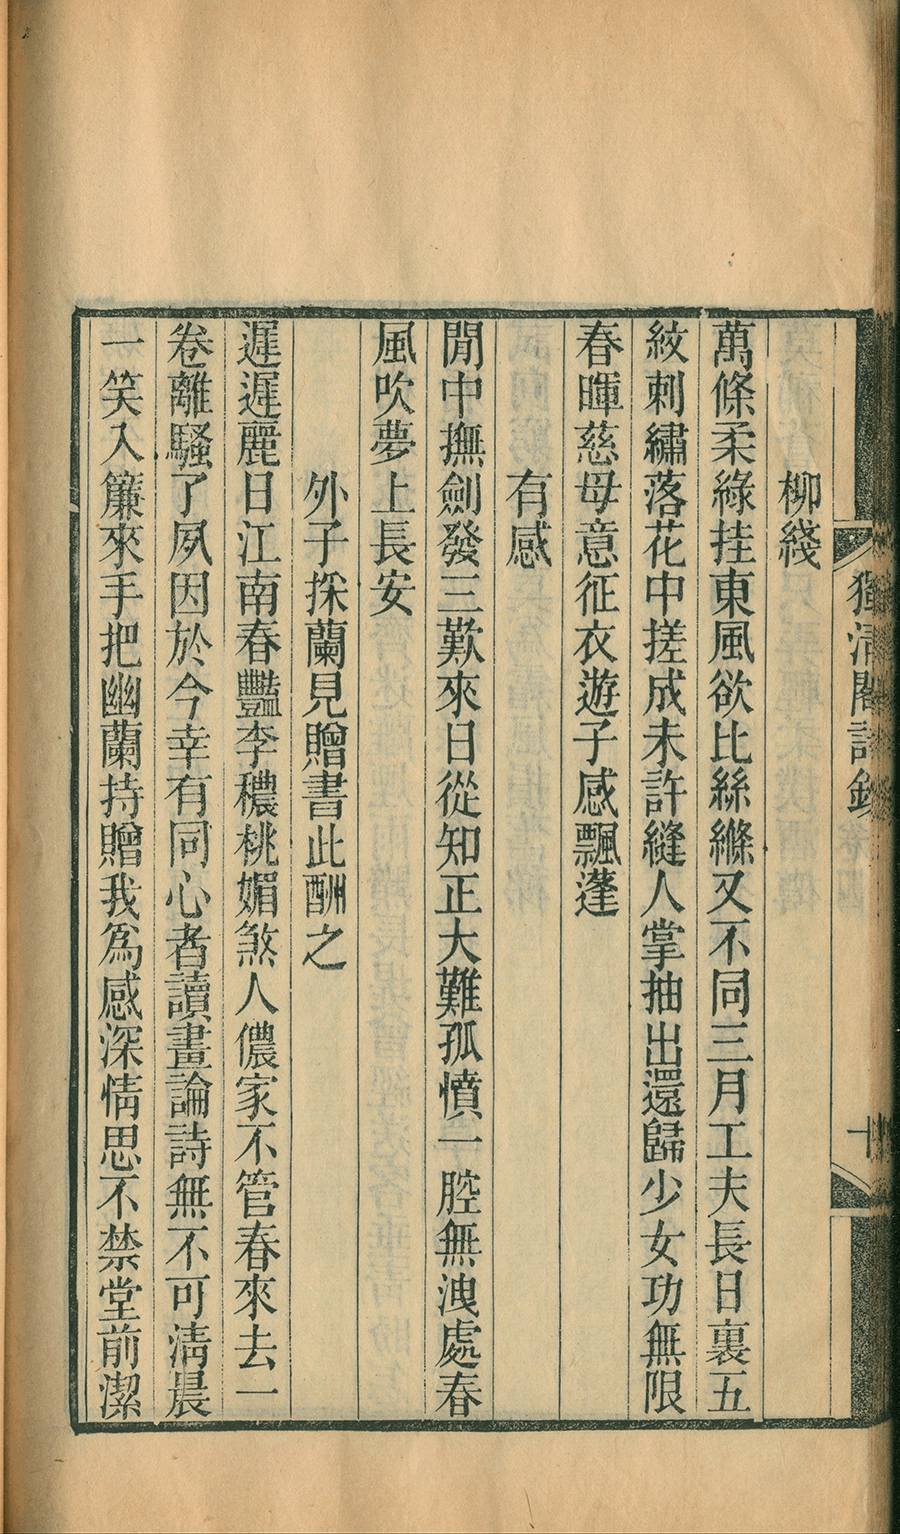 柳綫
萬條柔綠挂東風欲比絲縧又不同三月工夫長日裏五
紋刺繡落花中搓成未許縫人掌抽出還歸少女功無限
春暉慈母意征衣遊子感飄蓬
有感
閒中撫劍發三歎來日從知正大難孤憤一腔無洩處春
風吹夢上長安
外子採蘭見贈書此酬之
遲遲麗日江南春豔李穠桃媚煞人儂家不管春來去一
卷離騷了夙因於今幸有同心者讀畫論詩無不可淸晨
一笑入簾來手把幽蘭持贈我爲感深情思不禁堂前潔
獨清閣詩鈔
十